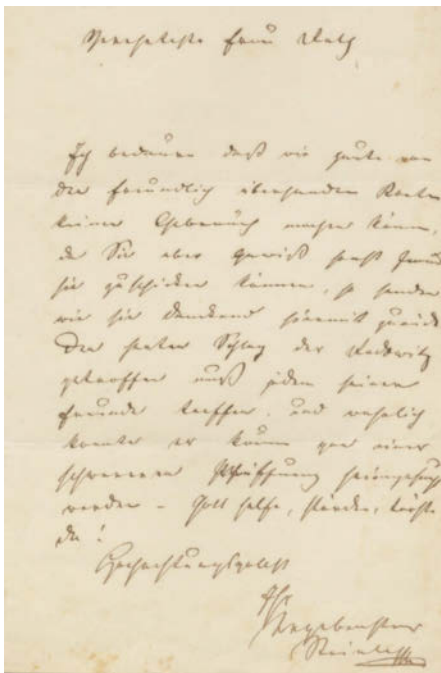 Verehrteste Frau Rath
Ich bedaure daß wir heute von
der freundlich übersandten Karten
keinen Gebrauch machen können,
da Sie aber gewiß sonst Jemand
sie zuschicken können, so senden
wir sie dankend hiermit zurück
Der harte Schlag der Radowitz
getroffen muß jeden seiner
Freunde treffen, und wahrlich
konnte er kaum von einer
schwereren Prüfung heimgesucht
werden – Gott helfe, stärke, tröste
da!
Hochachtungsvollst
Ihr
Ergebenster
Steinle